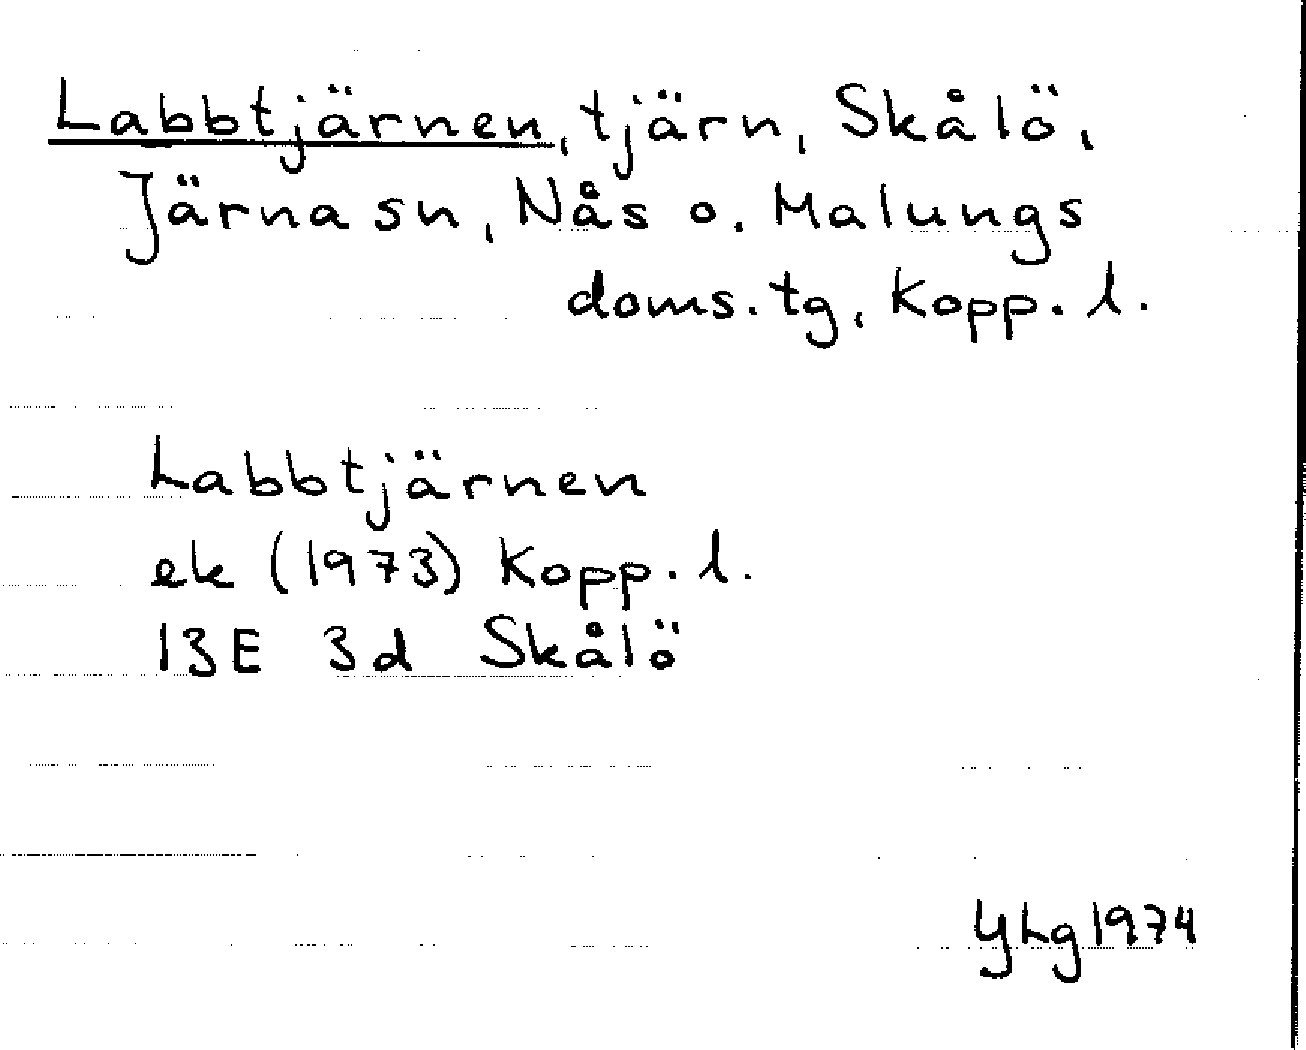 Labbtjärnen, tjärn, Skålö,
Järna sn, Nås o. Malungs
doms.tg, Kopp. l.
Labbtjärnen
ek (1973) Kopp. l.
13E 3d Skålö
YLg 1974